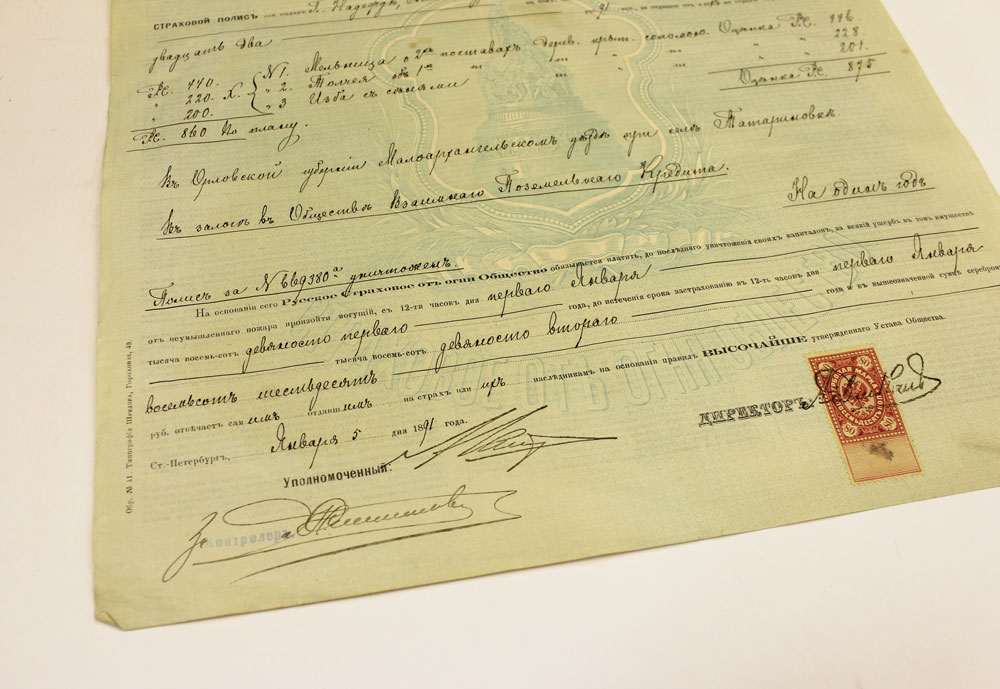 СТРАХОВОЙ ПОЛИСЪ
двадцать два
Рс. 440. №1. Мельница о 2хъ поставахъ дерев. крыт. соломою. Оцѣнка Рс. 446
" 220. Х. " 2. Толчея объ 1мъ " " " " 228.
" 200. " 3 Изба съ сѣнями " " " " 201.
Рс. 860 По плану. Оцѣнка Рс. 875
Въ Орловской губерніи Малоархангельскомъ уѣздѣ при селѣ Татариновкѣ
Въ залогѣ въ Обществѣ Взаимнаго Поземельнаго Кредита.
На одинъ годъ
Полисъ за №669380а уничтоженъ.
На основаніи сего Русское Страховое отъ огня Общество обязывается платить, до послѣдняго уничтоженія своихъ капиталовъ, за всякій ущербъ въ томъ имуществѣ
отъ неумышленнаго пожара произойти могущій, съ 12-ти часовъ дня перваго Января
тысяча восемь-сотъ девяносто перваго года, до истеченія срока застрахованію въ 12-ть часовъ дня перваго Января
тысяча восемь-сотъ девяносто втораго года и въ вышеозначенной суммѣ серебромъ
восемьсотъ шестьдесятъ
руб. отвѣчаетъ самимъ отдавшимъ на страхъ или ихъ наслѣдникамъ на основаніи правилъ ВЫСОЧАЙШЕ утвержденнаго Устава Общества.
Ст.-Петербургъ, Января 5 дня 1891 года.
ДИРЕКТОРЪ:
80 80
МАРКА
80 80
Уполномоченный:
Контролеръ
Обр. № 41. Типографія Шредера, Гороховая, 49.